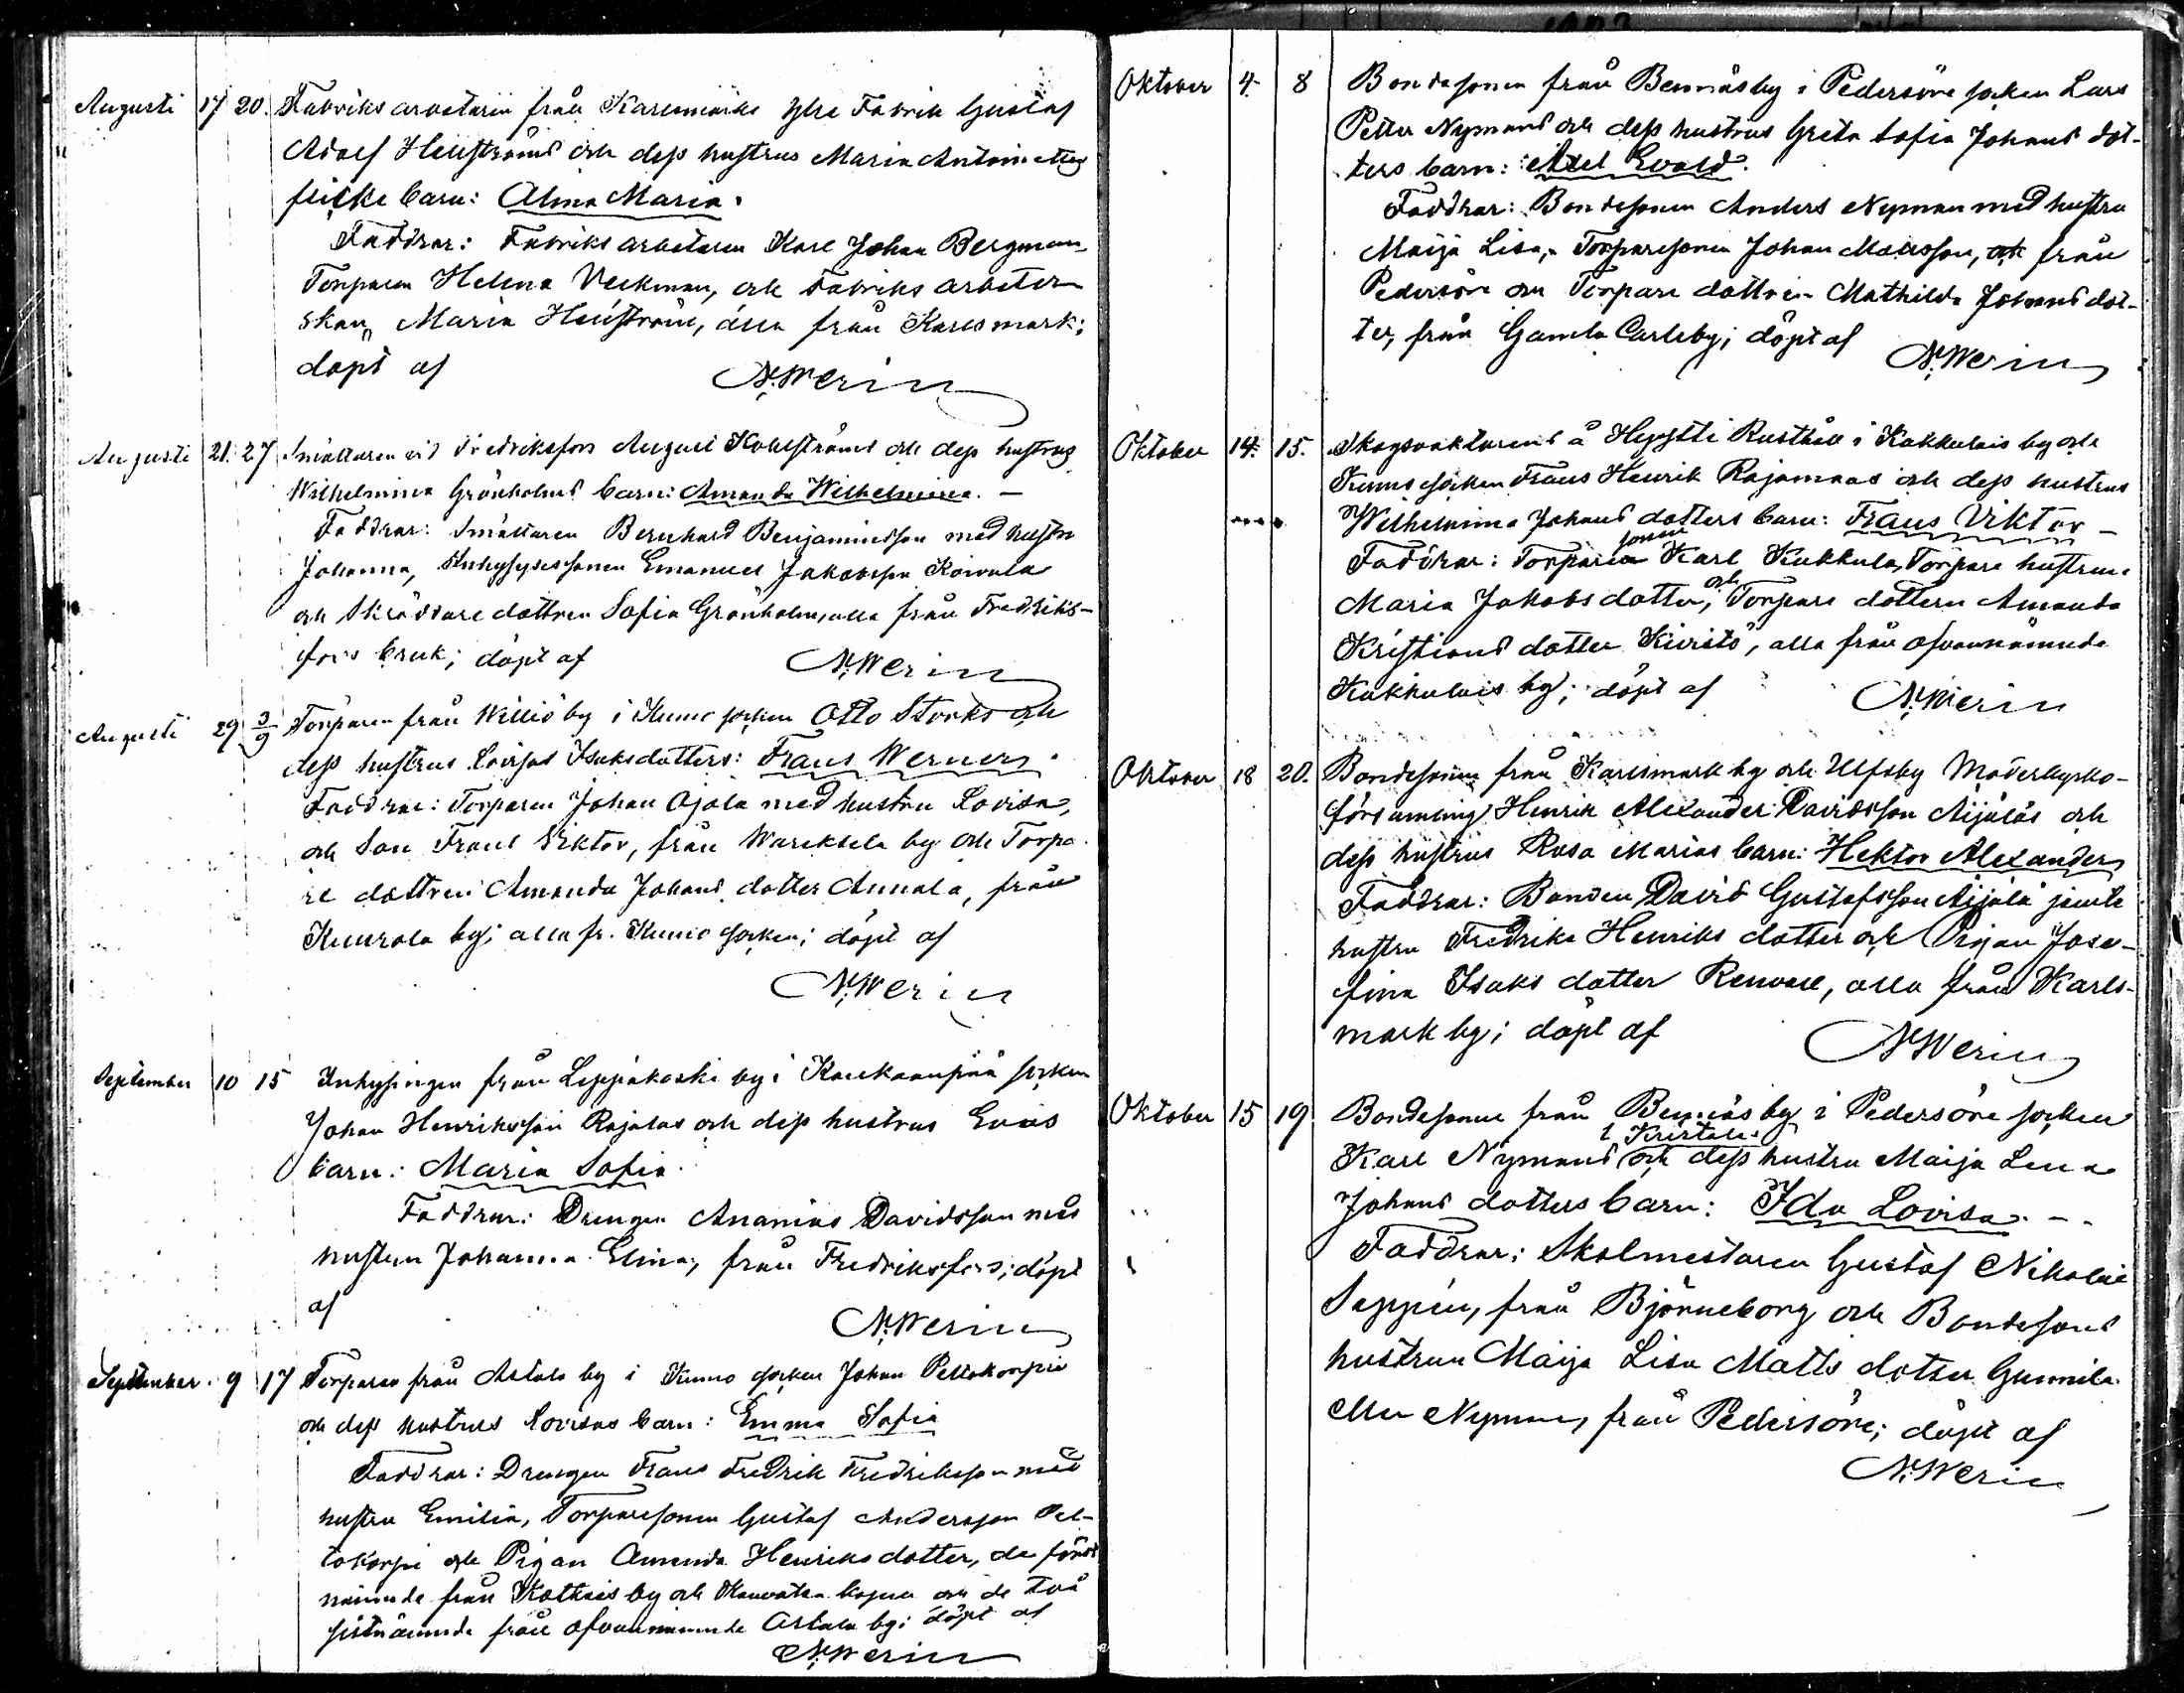 Augusti 17 20. Fabriks arbetaren från Karlsmarks Yllefabrik Gustaf
Adolf Hellströms och dess hustrus Maria Antoinettes
barn: Alma Maria.
Faddrar: Fabriks arbetaren Karl Johan Bergman
Helena Veckman, och Fabriks arbeter-
skan Maria Hellström, alla från Karlsmark;
döpt af N. Werin
Augusti 21. 27 Smältaren vid Fredriksfors August Kohlströms och dess hustrus
Wilhelmina Grönholms barn: Amanda Wilhelmina. –
Faddrar: Smältaren Bernhard Benjaminsson med hustru
Johanna, Inhysessonen Emanuel Jakobsson Koivula
och Skräddare dottren Sofia Grönholm, alla från Fredriks-
fors bruk; döpt af N. Werin
Augusti 29 3/9 Torparen från Williö by i Kumo socken Otto Storks och
dess hustrus Lovisas Isaksdotters: Frans Werner.
Faddrar: Torparen Johan Ojala med hustru Lovisa,
och Son Frans Viktor, från Wareksela by och Torpa-
re dottren Amanda Johans dotter Annala, från
by; alla fr. Kumo socken; döpt af
N. Werin
September 10 15 Inhysingen från Leppäkoski by i Kankaanpää socken
Johan Henriksson Rajalas och dess hustrus Evas
barn: Maria Sofia.
Faddrar: Drengen Ananias Davidsson med
hustrun Johanna Elina, från Fredriksfors; döpt
af N. Werin
September 9 17 Torparen från Astala by i Kumo socken Johan Peltokorpis
och dess hustrus Lovisas barn: Emma Sofia
Faddrar: Drengen Frans Fredrik Fredriksson med
hustru Emilia, Torparesonen Gustaf Andersson Pel-
tokorpi och Pigan Amanda Henriks dotter, de först
nämnde från by och och de två
sistnämnde från ofvannämnde Astala by; döpt af
N. Werin
Oktober 4. 8 Bondesonen från Bennäs by i Pedersöre socken Lars
Petter Nymans och dess hustrus Greta Sofia Johans dot-
ters barn: Axel Evald.
Faddrar: Bondesonen Anders Nyman med hustru
Maija Lisa, Torparesonen Johan Matsson, från
Pedersöre och Torpare dottren Mathilda Johans dot-
ter, från Gamla Carleby; döpt af N. Werin
Oktober 14. 15. Skogsvaktarens å Hyytti Rusthåll i Kukkulais by och
Kumo socken Frans Henrik Rajamaas och dess hustrus
Wilhelmina Johans dotters barn: Frans Viktor –
sonen
Faddrar: Torpare Karl Kukkula, Torpare hustrun
Maria Jakobs dotter, och Torpare dottern Amanda
Kristians dotter Kivistö, alla från ofvannämnde
Kukkulais by; döpt af N. Werin
Oktober 18 20. Bondesonen från Karlsmark by och Ulfsby Moderkyrko-
församling Henrik Alexander Davidsson Äijäläs och
dess hustrus Rosa Marias barn: Hektor Alexander
Faddrar: Bonden David Gustafsson Äijälä jemte
hustru Fredrika Henriks dotter och Pigan Jose-
fina Isaks dotter Renvall, alla från Karls-
mark by; döpt af N. Werin
Oktober 15 19 Bondesonen från Bennäs by i Pedersöre socken
Karl Nymans och dess hustru Maija Lena
Johans dotters barn: Ida Lovisa. –
Faddrar: Skolmestaren Gustaf Nikolai
Seppén, från Björneborg och Bondesons
hustrun Maija Lisa Matts dotter
eller Nyman, från Pedersöre; döpt af
N. Werin